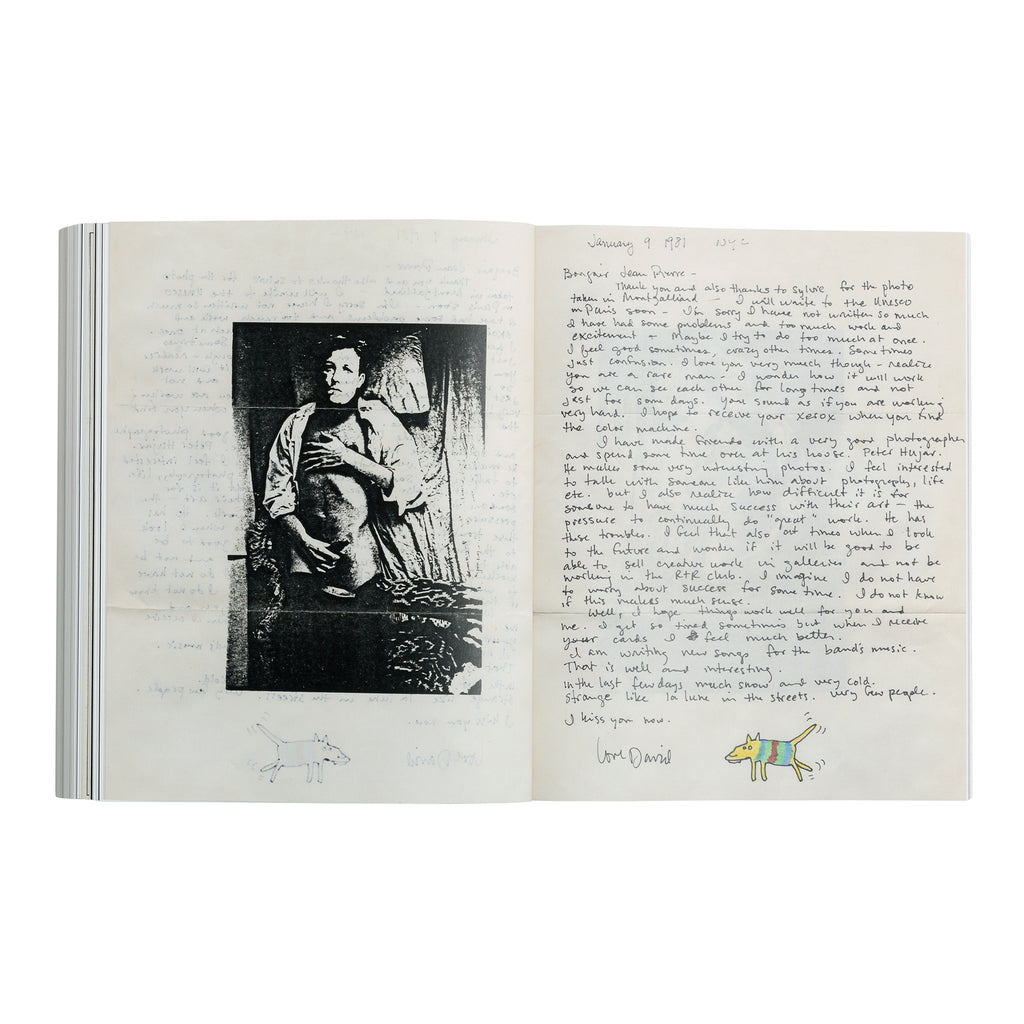 January 9 1981 NYC
Bonjoir Jean Pierre -
Thank you and also thanks to Sylvie for the photo
taken in Montgalliard - I will write to the Unesco
in Paris soon - I'm sorry I have not written so much
I have had some problems and too much work and
excitement - Maybe I try to do too much at once.
I feel good sometimes, crazy other times. Sometimes
just confusion. I love you very much though - realize
you are a rare man. I wonder how it will work
so we can see each other for long times and not
just for some days. You sound as if you are working
very hard. I hope to receive your xerox when you find
the color machine.
I have made friends with a very good photographer
and spend some time over at his house. Peter Hujar.
He makes some very interesting photos. I feel interested
to talk with someone like him about photography, life
etc. but I also realize how difficult it is for
someone to have much success with their art - the
pressure to continually do "great" work. He has
these troubles. I feel that also at times when I look
to the future and wonder if it will be good to be
able to sell creative work in galleries and not be
working in the R+R club. I imagine I do not have
to worry about success for some time. I do not know
if this makes much sense.
Well, I hope things work well for you and
me. I get so tired sometimes but when I receive
your cards I feel much better.
I am writing new songs for the band's music.
That is well and interesting.
In the last few days much snow and very cold.
Strange like la lune in the streets. very few people.
I kiss you now.
Love David